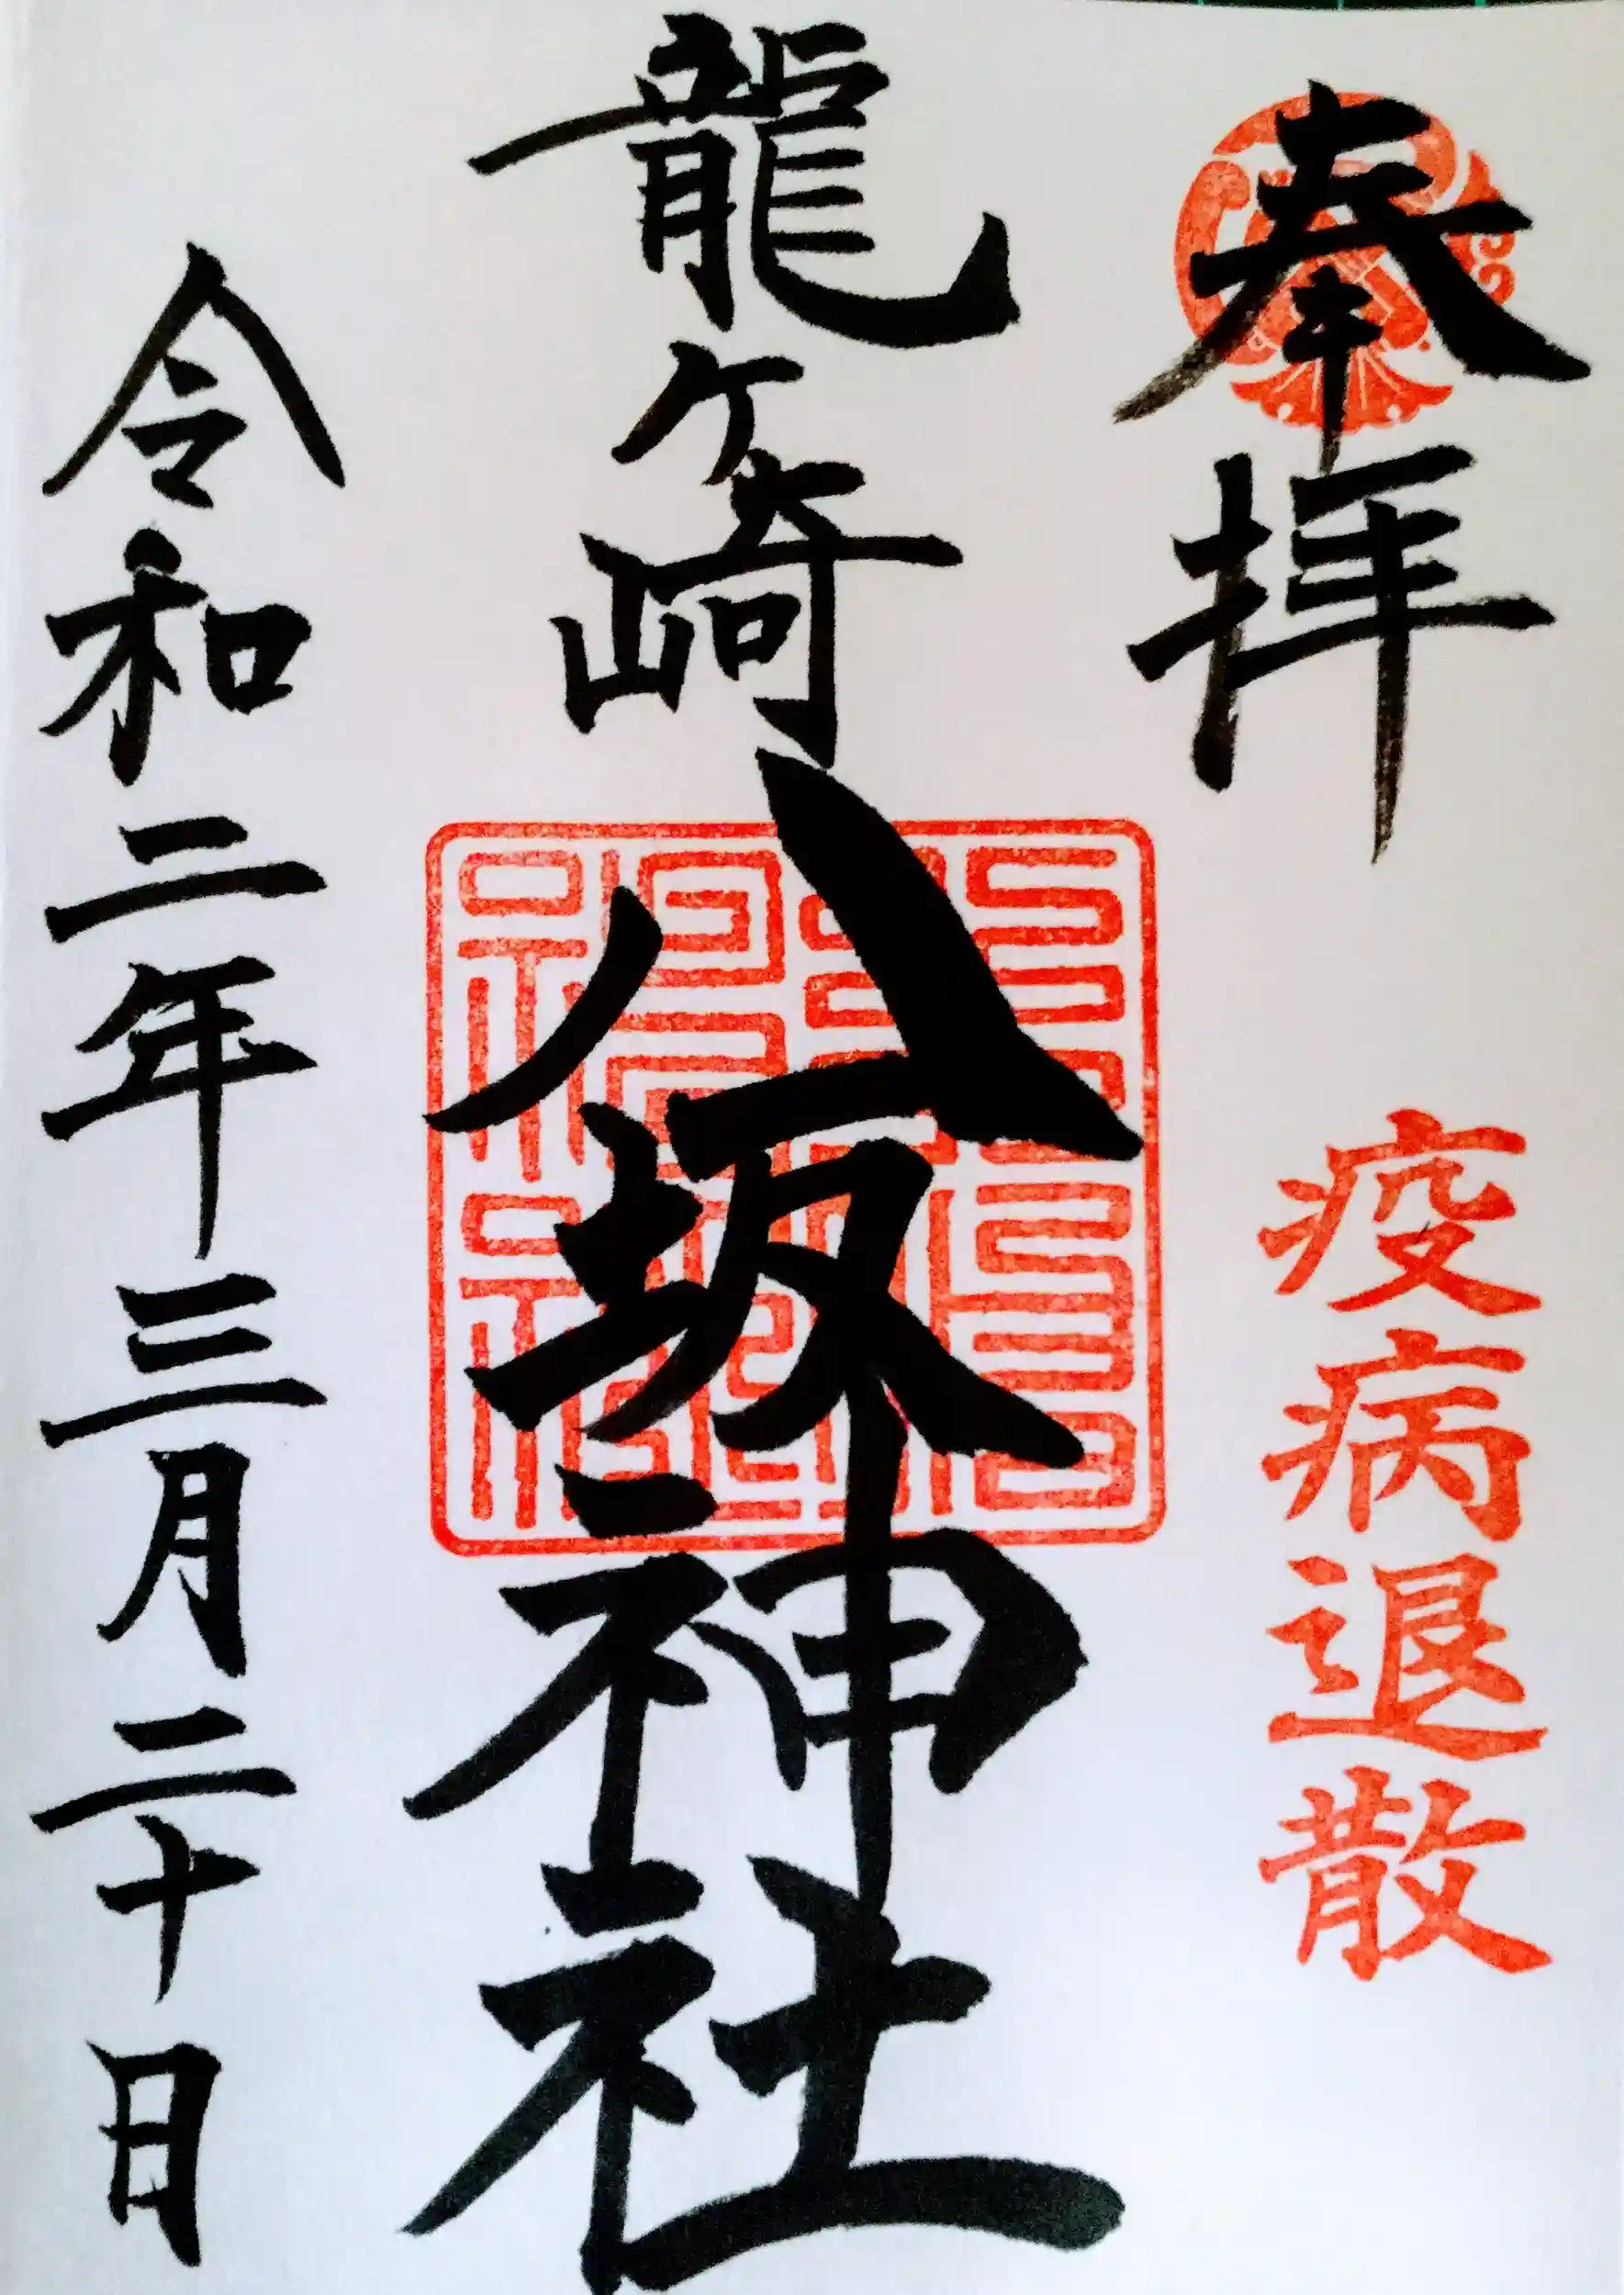 奉拝
疫病退散
龍ケ崎
八坂神社
令和二年三月二十日